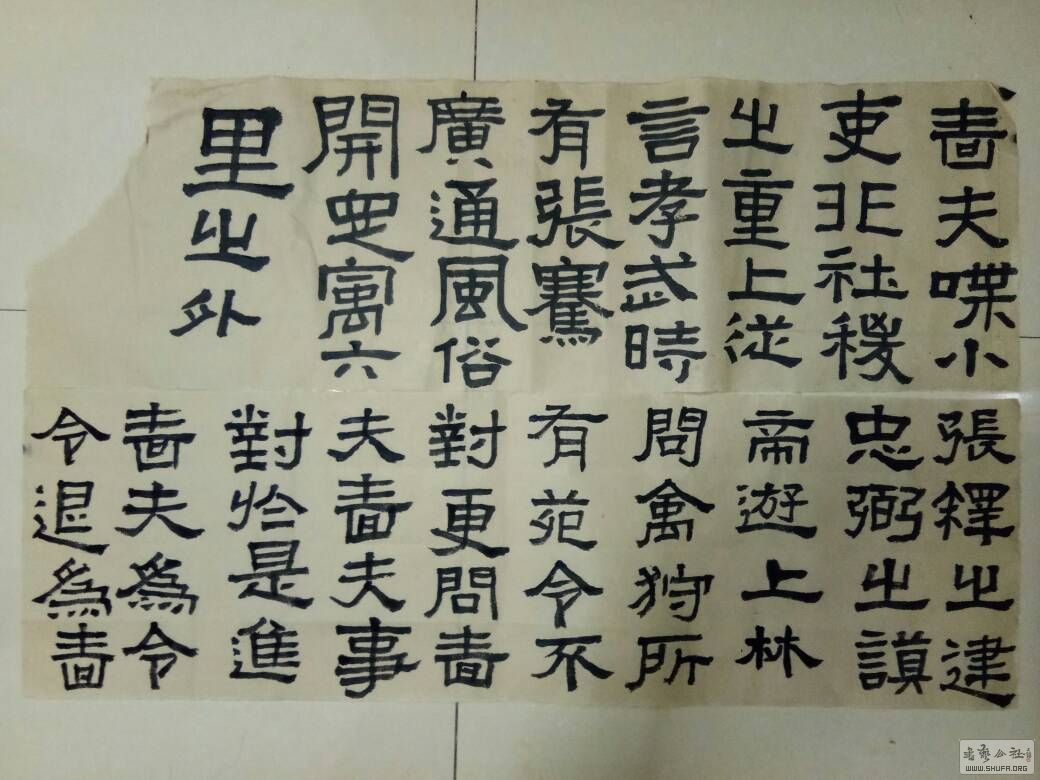 嗇夫喋小
吏非社稷
之重上從
言孝武時
有張騫
廣通風俗
開定寓六
里之外
張釋之建
忠弼之謨
帝遊上林
問禽狩所
有苑令不
對更問嗇
夫嗇夫事
對於是進
嗇夫為令
令退為嗇
書藝公社
WWW.SHUFA.ORG